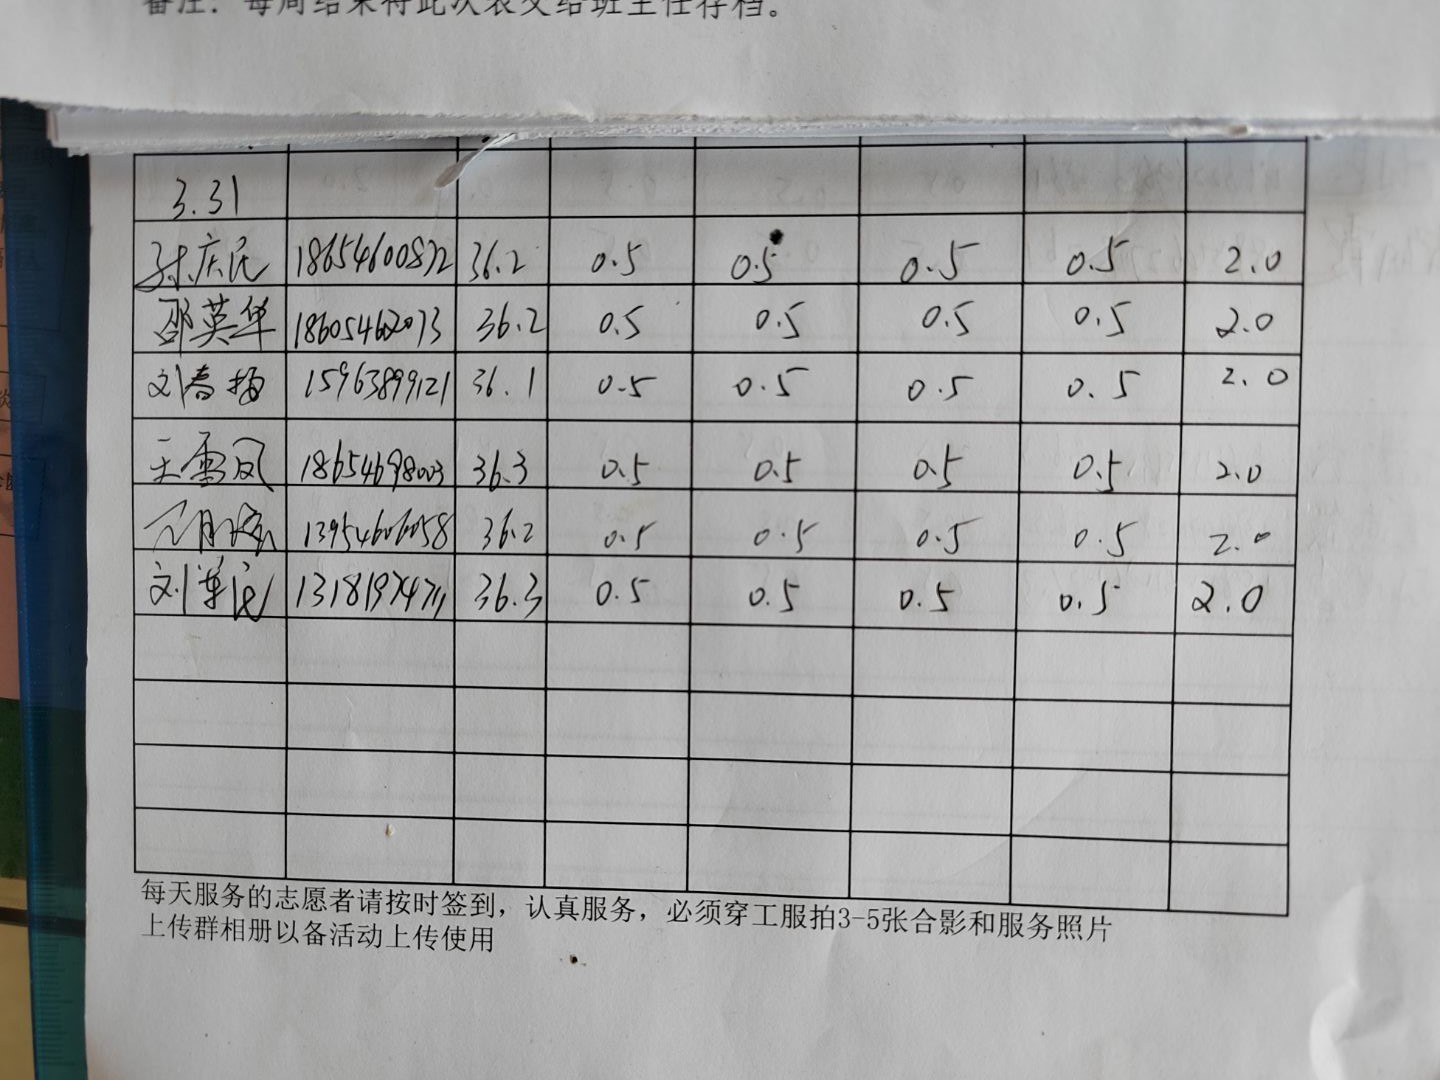 备注：每周结束将此次表交给班主任存档。
3.31
孙庆民 18654600872 36.2 0.5 0.5 0.5 0.5 2.0
邵英华 18605462073 36.2 0.5 0.5 0.5 0.5 2.0
刘春梅 15963899121 36.1 0.5 0.5 0.5 0.5 2.0
王雪凤 18654698003 36.3 0.5 0.5 0.5 0.5 2.0
13954606058 36.2 0.5 0.5 0.5 0.5 2.0
36.3 0.5 0.5 0.5 0.5 2.0
每天服务的志愿者请按时签到，认真服务，必须穿工服拍3-5张合影和服务照片
上传群相册以备活动上传使用